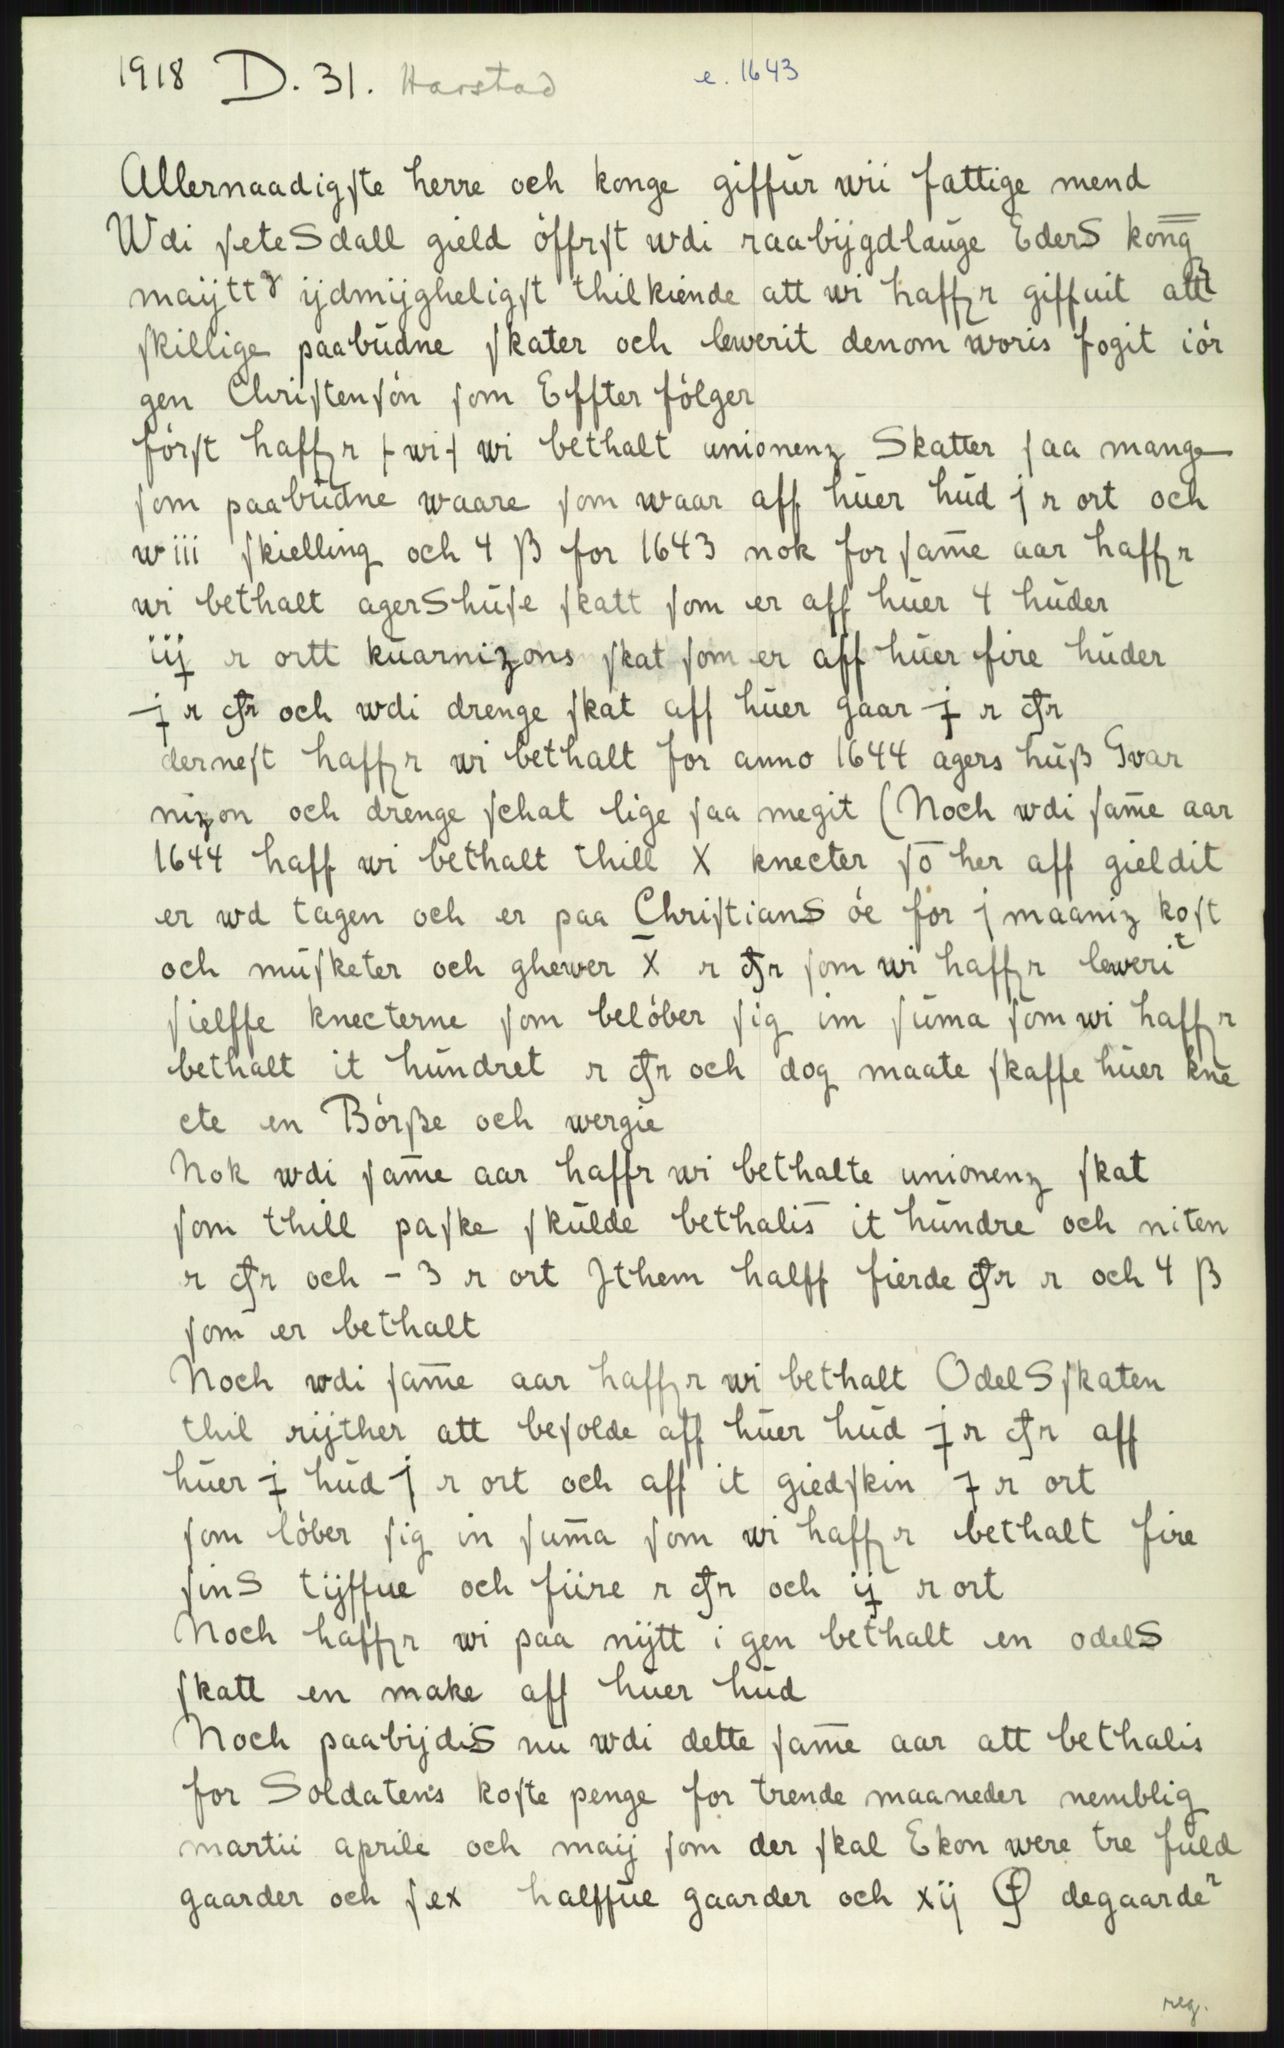 1918 D. 31. Harstad e. 1643
Allernaadigſte herre och konge giffūr wii fattige mend
Wdi ſeteSdall gield öffrſt wdi raabÿgdlaūge EderS kong
maÿtt ÿdmÿgheligſt thilkiende att wi haffr giffuit att
ſkillige paabūdne ſkater och lewerit denom woris fogit iór
gen Chriſtenſón ſom Effter fólger
fórſt haffr ⁅wi⁆ wi bethalt unionenz Skatter ſaa mange
ſom paabūdne waare ſom waar aff hūer hūd j r ort och
wiii ſkielling och 4 β for 1643 nok for ſam̅e aar haffr
wi bethalt agerShūſe ſkatt ſom er aff hūer 4 hūder
iij r ortt kūarnizons ſkat ſom er aff hūer fire hūder
j r dr och wdi drenge ſkat aff hūer gaar j r dr
derneſt haffr wi bethalt for anno 1644 agers hūß Gvar
nizon och drenge ſchat lige ſaa megit (Noch wdi ſam̅e aar
1644 haff wi bethalt thill X knecter ſo̅ her aff gieldit
er wd tagen och er paa ChriſtianS óe for j maaniz koſt
och mūſketer och ghewer X r dr ſom wi haffr leweri^t
ſielffe knecterne ſom belóber ſig im ſūma ſom wi haffr
bethalt it hūndret r dr och dog maate ſkaffe hūer kne
cte en Bórße och wergie
Nok wdi ſam̅e aar haffr wi bethalte unionenz ſkat
ſom thill paſke ſkūlde bethalis it hūndre och niten
r dr och - 3 r ort Jthem halff fierde dr r och 4 β
ſom er bethalt
Noch wdi ſam̅e aar haffr wi bethalt OdelSſkaten
thil rÿther att beſolde aff hūer hūd j r dr aff
hūer j hūd j r ort och aff it giedſkin j r ort
ſom lóber ſig in ſum̅a ſom wi haffr bethalt fire
ſinS tÿffue och fiire r dr och ij r ort
Noch haffr wi paa nÿtt i gen bethalt en odelS
ſkatt en make aff hūer hūd
Noch paabÿdiS nū wdi dette ſam̅e aar att bethalis
for Soldatens koſte penge for trende maaneder nemblig
martii aprile och maij ſom der ſkal Ekon were tre fūld
gaarder och ſex halffūe gaarder och xij Ø degaarde^r
reg.